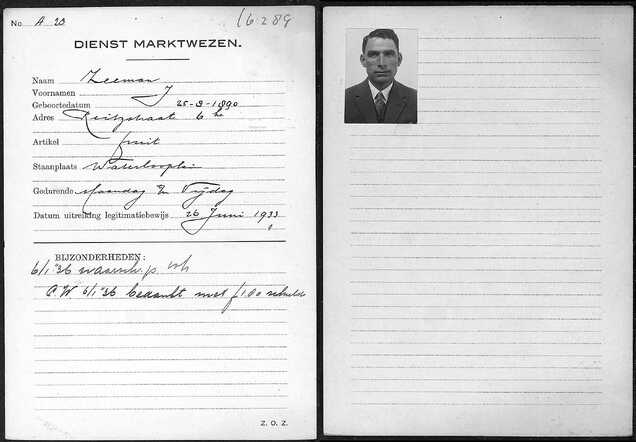 No A 20
16289
DIENST MARKTWEZEN.
Naam Zeeman
Voornamen J
Geboortedatum 25-3-1890
Adres Reitzstraat 6 hs
Artikel fruit
Staanplaats Waterlooplein
Gedurende Maandag en Vrijdag
Datum uitreiking legitimatiebewijs 26 Juni 1933
BIJZONDERHEDEN:
6/1'36 waarsch.
6/1'36 met f1.00
Z. O. Z.